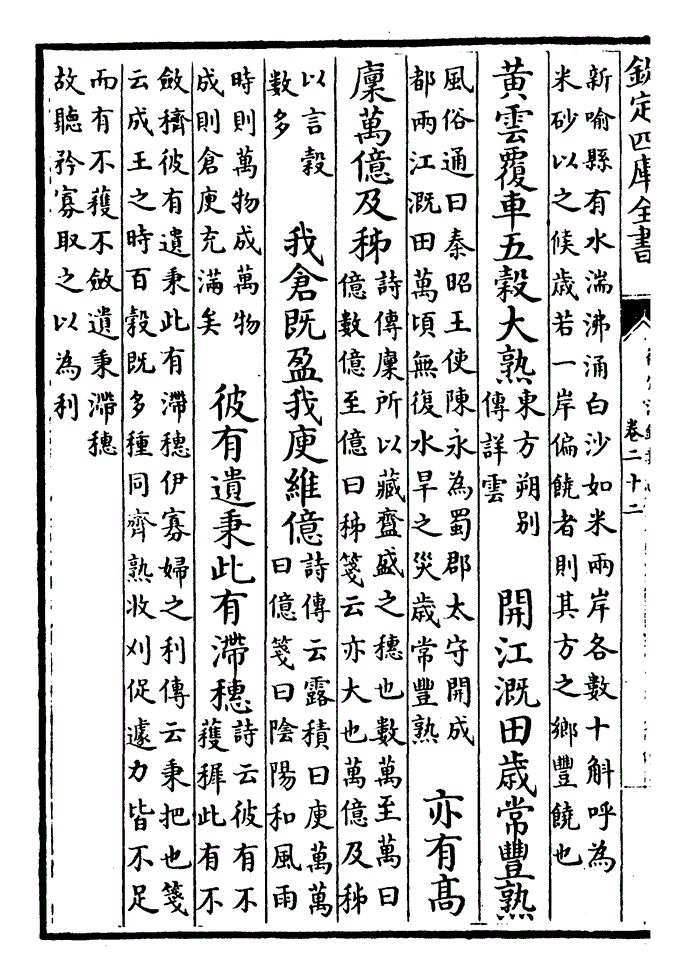 欽定四庫全書
卷二十二
新喻縣有水湍沸涌白沙如米兩岸各數十斛呼為
米砂以之候歲若一岸偏饒者則其方之鄉豐饒也
黄雲覆車五穀大熟
東方朔别
傳詳雲
開江溉田歳常豐熟
風俗通曰秦昭王使陳永為蜀郡太守開成
都兩江溉田萬頃無復水旱之災歳常豐熟
亦有髙
廩萬億及秭
詩傳廩所以藏齍盛之穗也數萬至萬曰
億數億至億曰秭箋云亦大也萬億及秭
以言穀
數多
我倉既盈我庾維億
詩傳云露積曰庾萬萬
曰億箋曰陰陽和風雨
時則萬物成萬物
成則倉庾充滿矣
彼有遺秉此有滯穗
詩云彼有不
穫穉此有不
斂穧彼有遺秉此有滯穗伊寡婦之利傳云秉把也箋
云成王之時百穀既多種同齊熟收刈促遽力皆不足
而有不穫不斂遺秉滯穗
故聽矜寡取之以為利